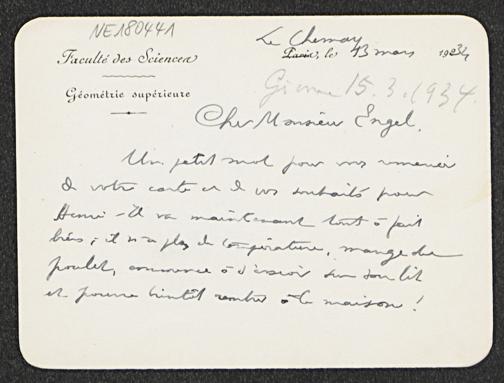 NE180441
Faculté des Sciences
Géométrie supérieure
Le Chesnay
Paris, le 13 mars 1934
15.3.1934.
Cher Monsieur Engel,
Un petit mot pour vous remercier
de votre carte et de vos souhaits pour
Henri - Il va maintenant tout à fait
bien, il n'a plus de température, mange du
poulet, commence à s'asseoir sur son lit
et pourra bientôt rentrer à la maison !